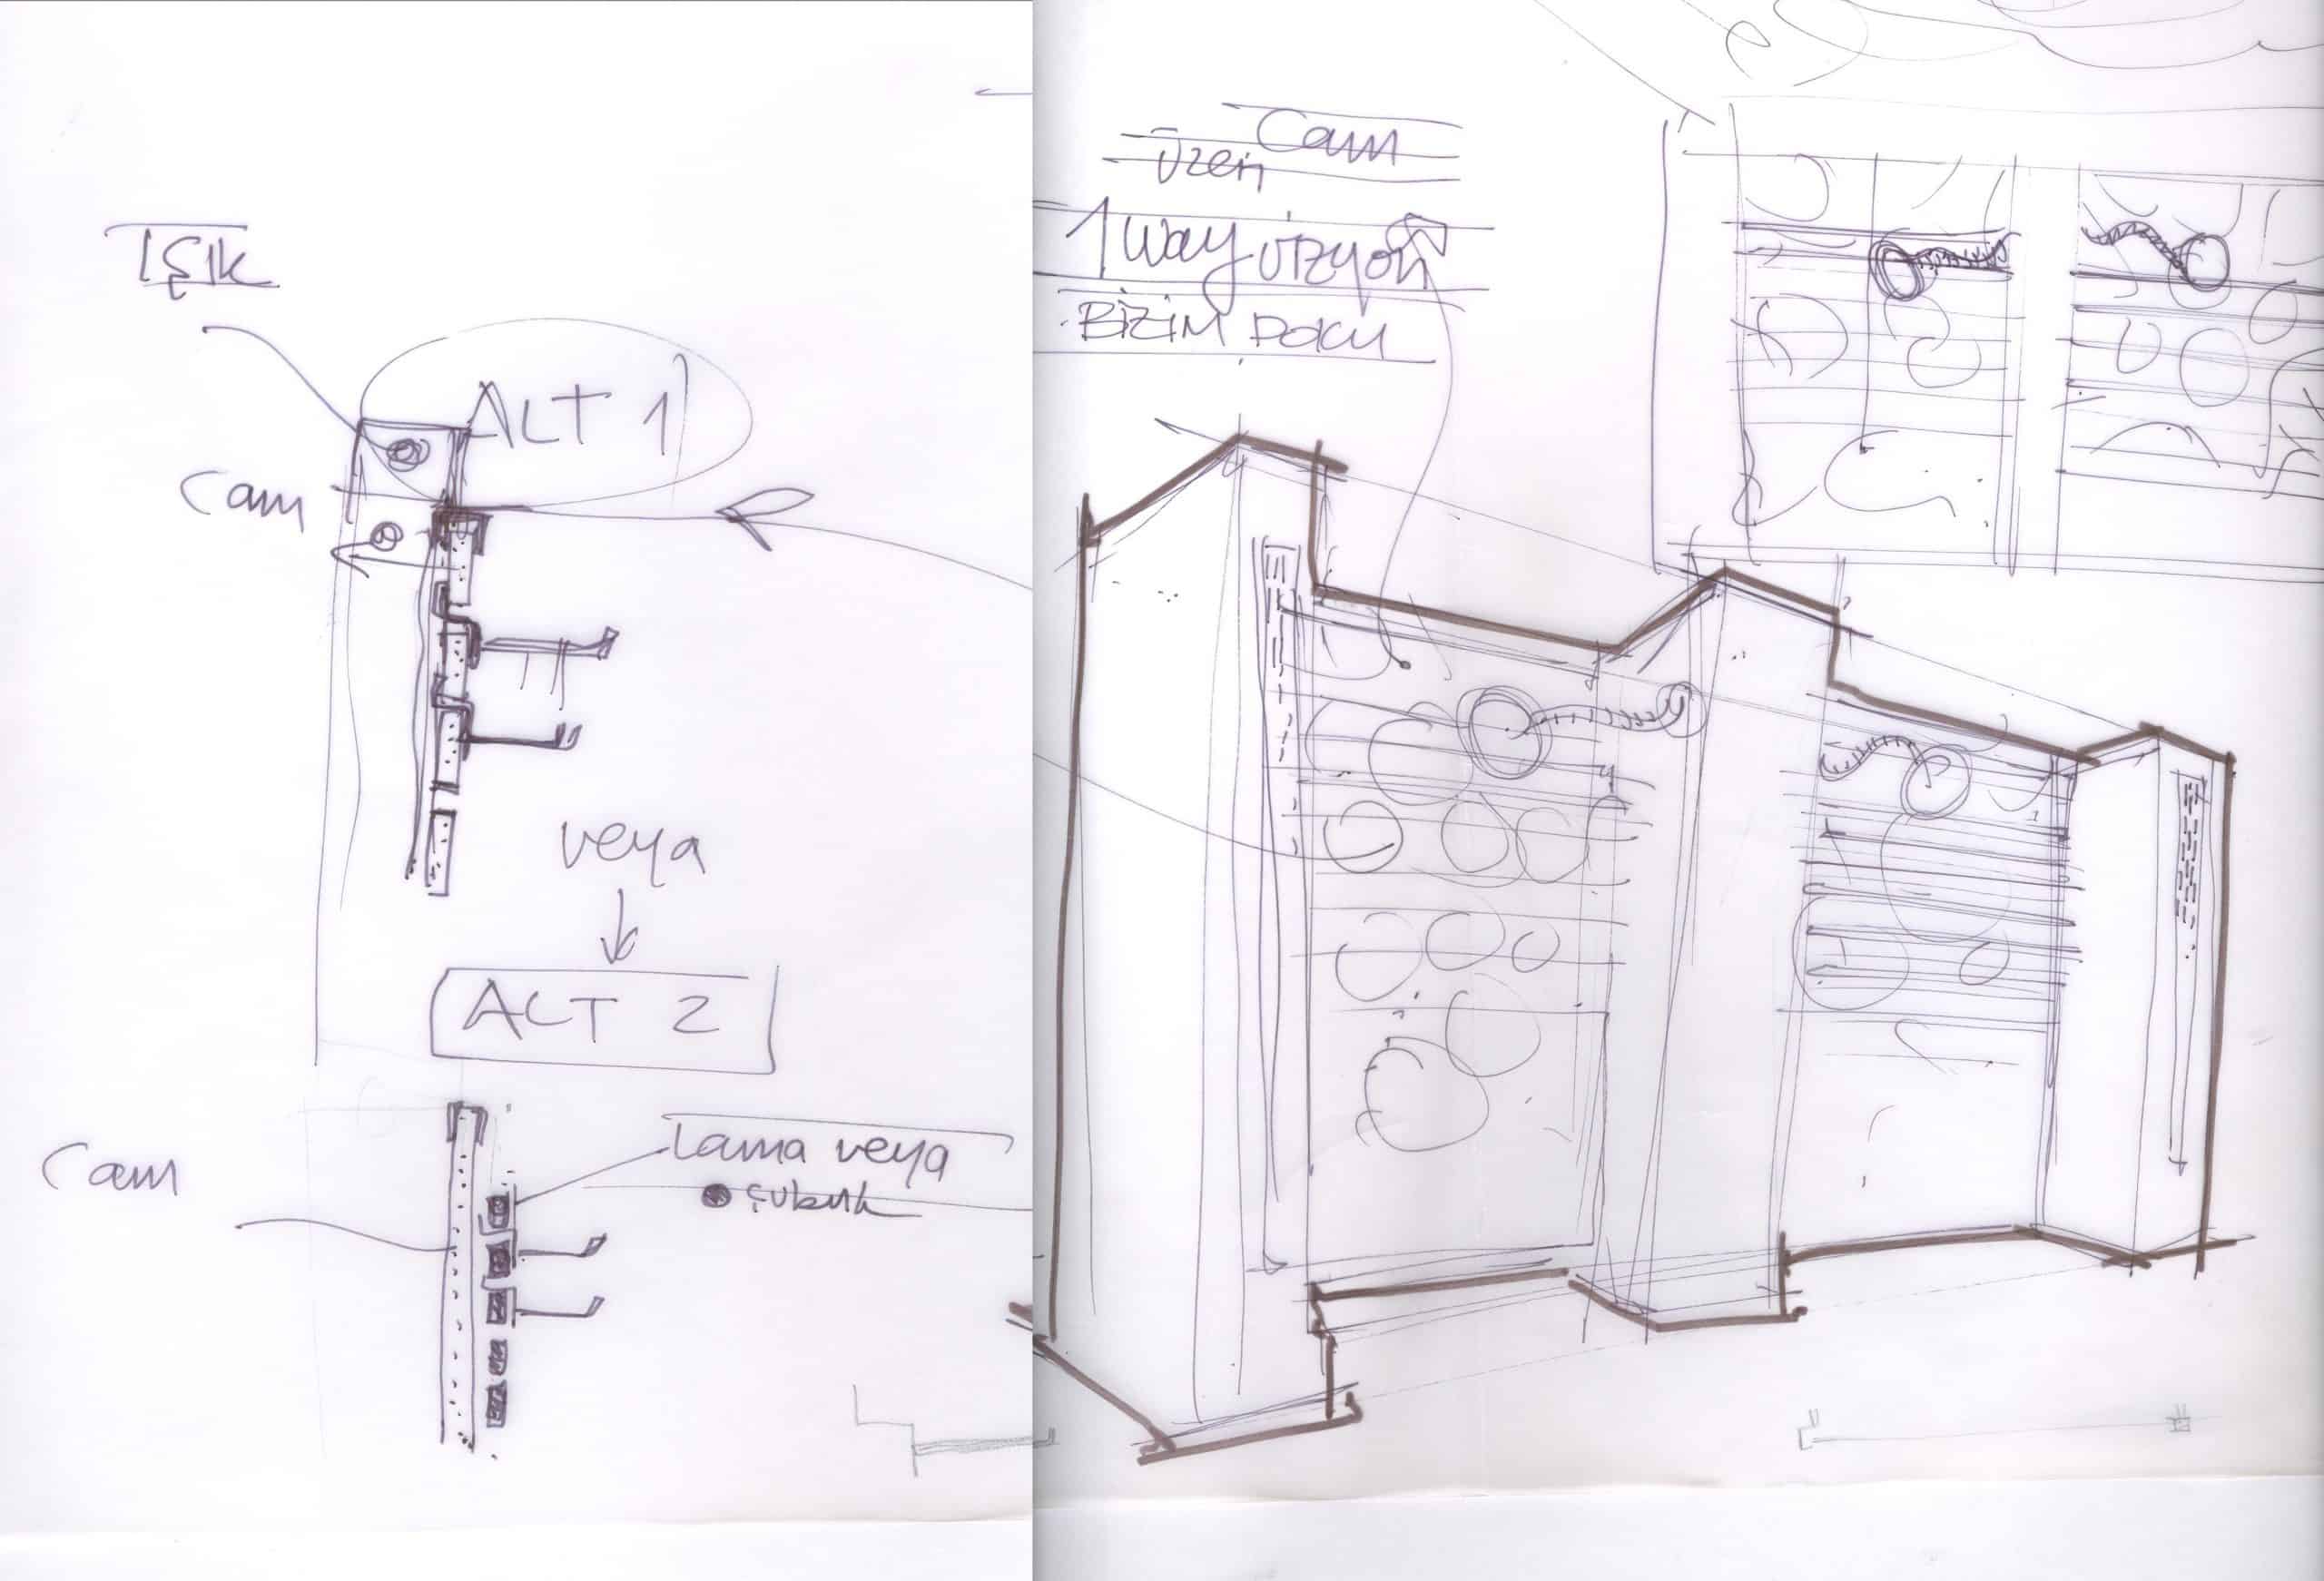 IŞIK
ALT 1
Cam
veya
ALT 2
Cam
Lama veya
çubuk
Cam
üzeri
1 Way vizyon
BİZİM DOKU